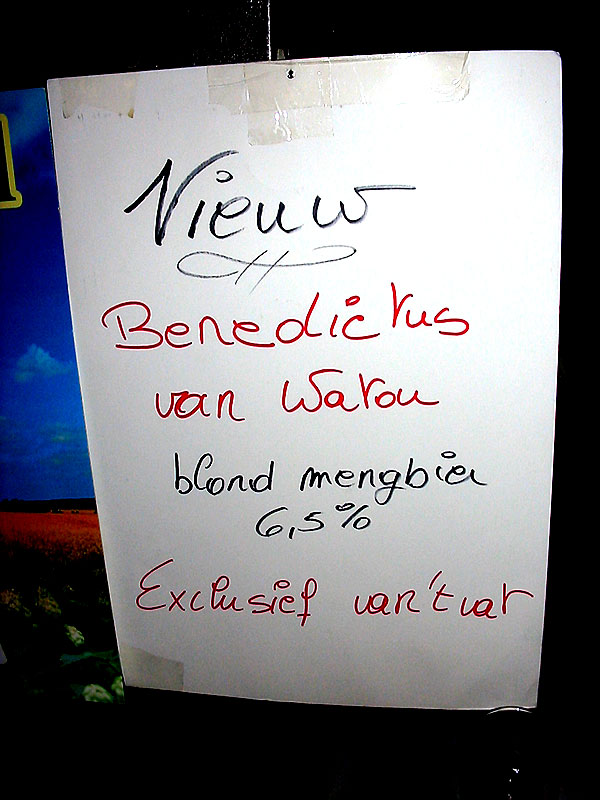 Nieuw
Benedictus
van Watou
blond mengbier
6,5%
Exclusief van't vat